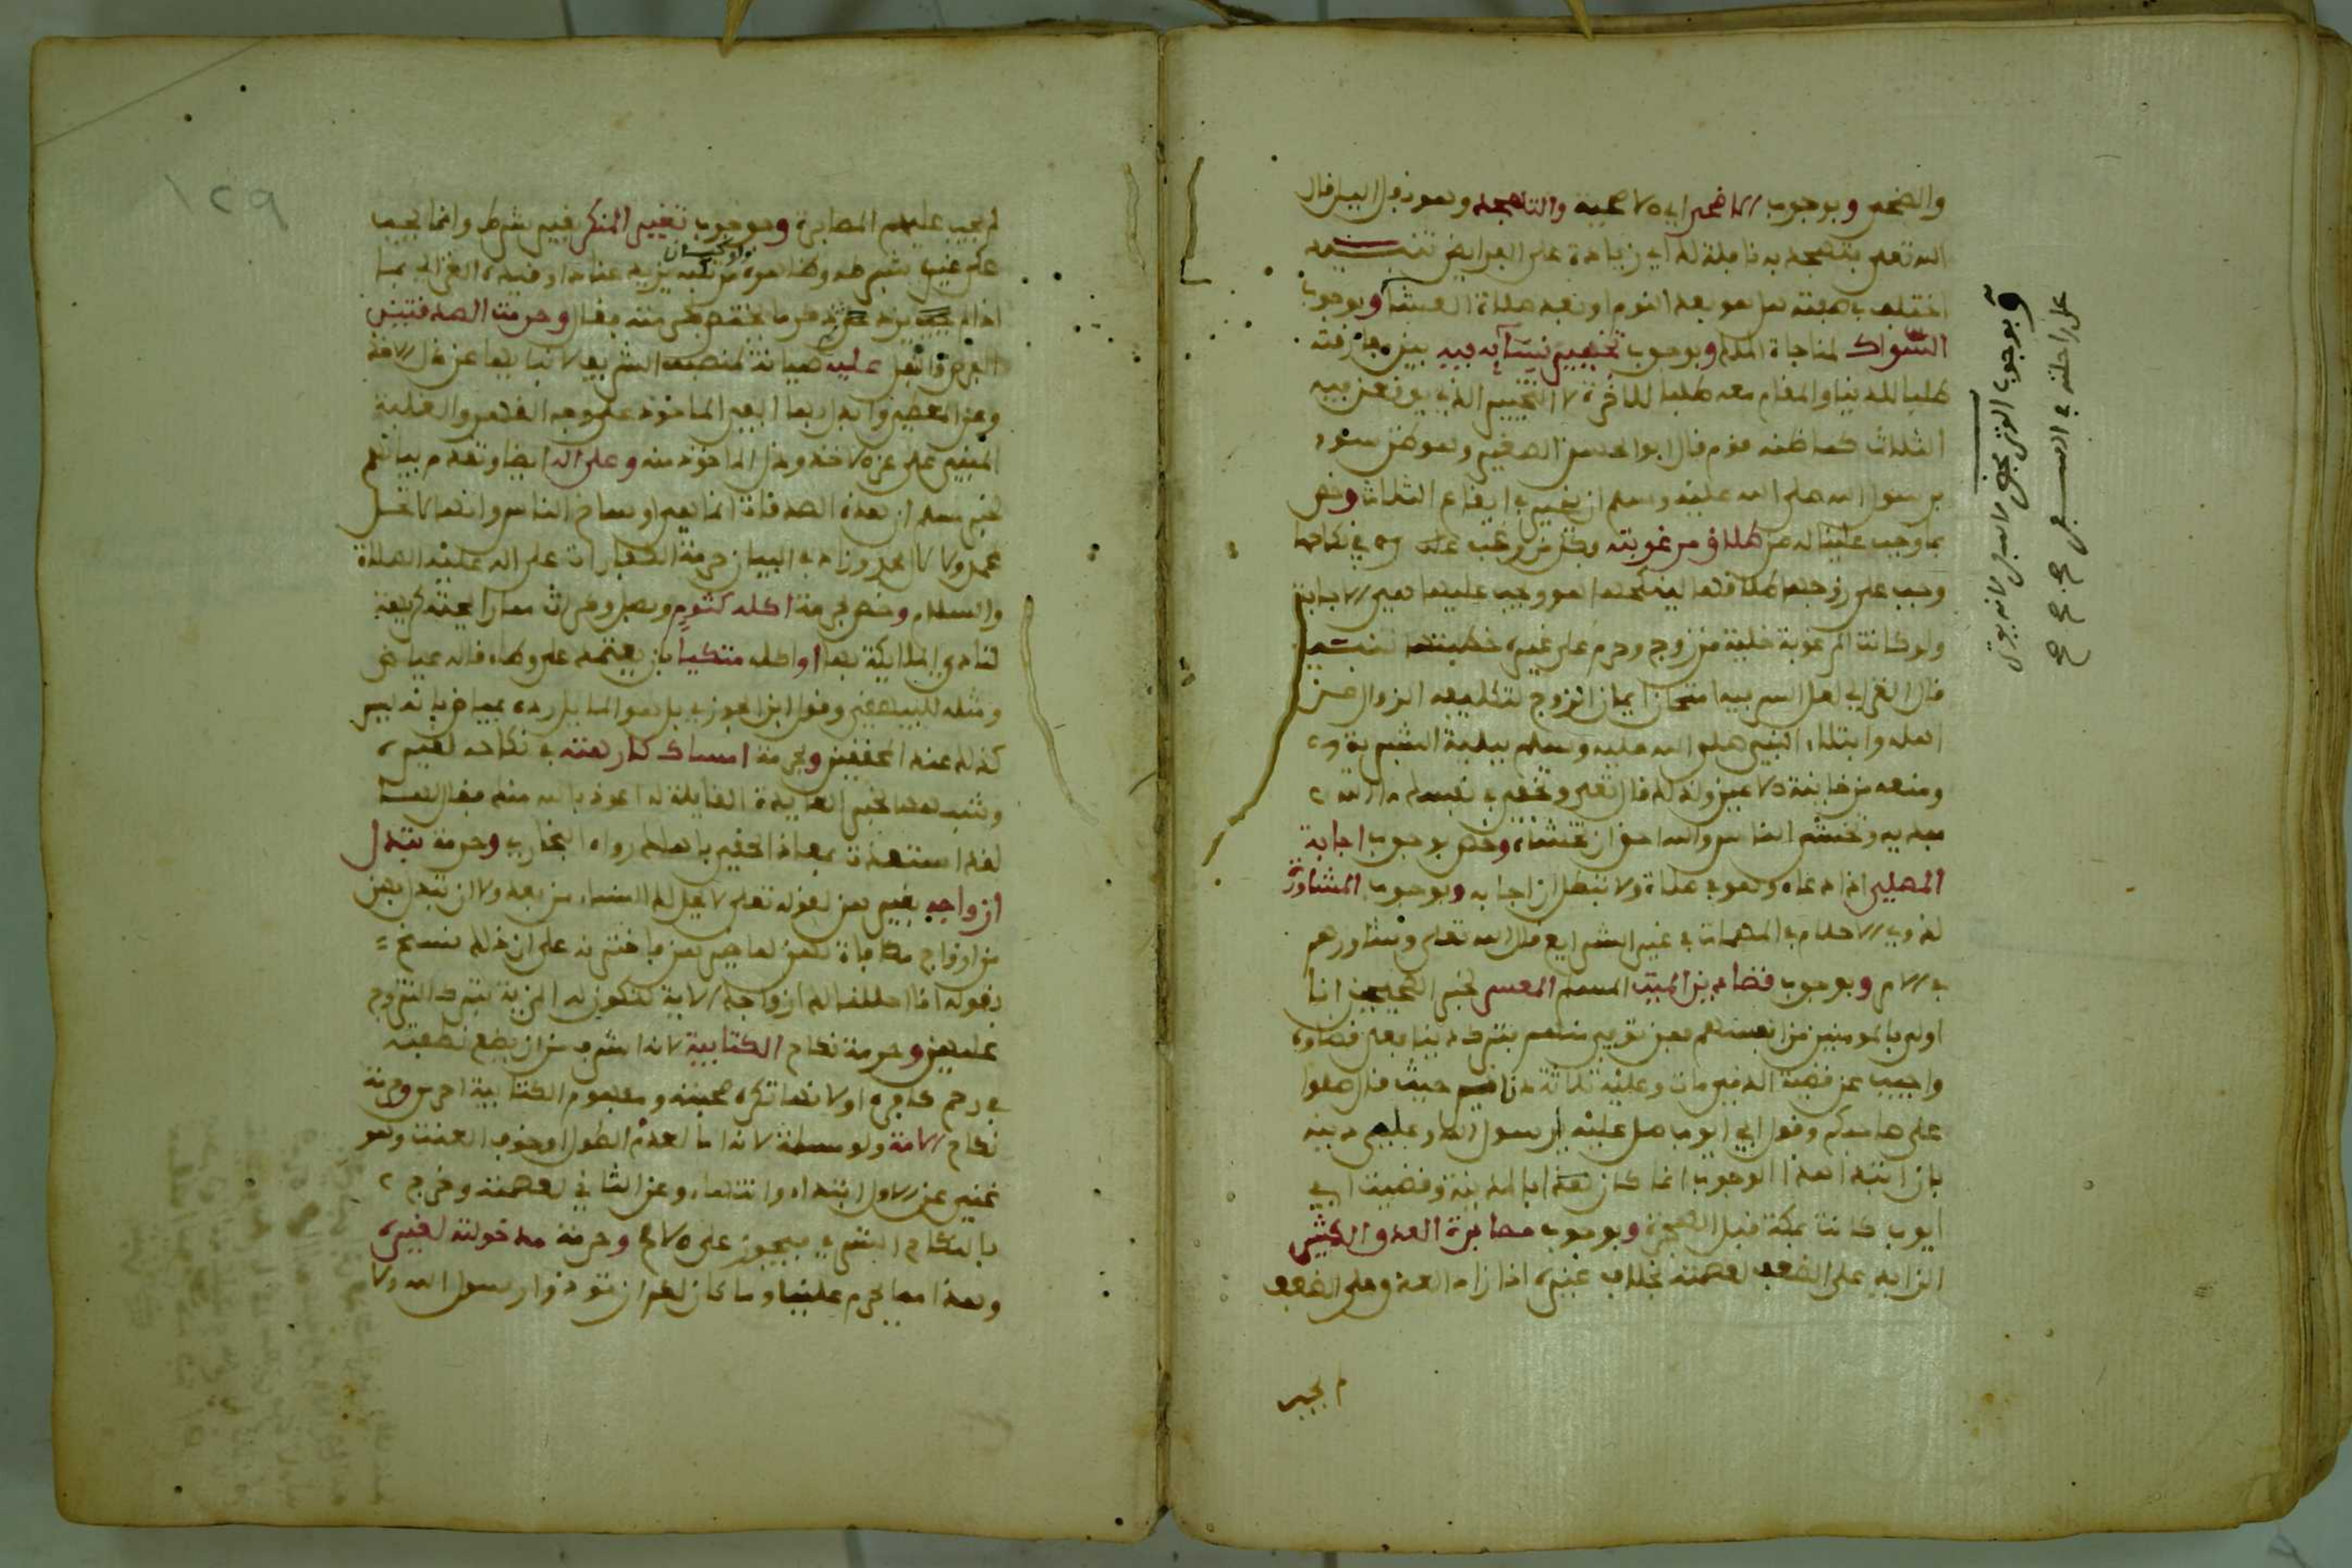 والضحى وبوجوب الاضحى اي الاضحية والتهجد وهو نفل الليل قال
الله تعلى فتهجد به نافلة لك اي زيادة على الفرايض تنبيه
اختلف في صفته هل هو بعد النوم او بعد صلاة العشا وبوجوب
السواك لمناجاة الملك وبوجوب تخيير نسايه فيه بين مفارقته
طلبا للدنيا والمقام معه طلبا للاخرة لا التخيير الذي يوقعن فيه
الثلاث كما ظنه قوم قال ابو الحسن الصغير وهو ظن سوء
برسول الله صلى الله عليه وسلم ان يخير في ايقاع الثلاث وخص
بما وجب علينا له من طلاق مرغوبته
وجب على زوجها طلاقها لينكحها هو ووجب عليها هي الاجابة
ولو كانت المرغوبة خلية من زوج وحرم على غيره خطبتها تنبيه
قال الغزالي لعل السر فيه امتحان ايمان الزوج لتكليفه النزول عن
اهله وابتلاء النبي صلى الله عليه وسلم ببلية البشرية
ومنعه من خاينة الاعين ولذلك قال تعلى وتخفي في نفسك ما الله
مبديه وتخشى الناس والله احق ان تخشاه وخص بوجوب اجابة
المصلي اذا دعاه وهو في صلاة ولا تبطل ان اجابه وبوجوب المشاورة
لذوي الاحلام في المهمات في غير الشرايع قال الله تعلى وشاورهم
في الامر وبوجوب قضاء دين الميت المسلم المعسر لخبر الصحيحين انا
اولى بالمومنين من انفسهم فمن توفي منهم فترك دينا فعلي قضاوه
واجيب عن قضية الذي مات وعليه ثلاثة دنانير حيث قال صلوا
على صاحبكم وقول ابي ايوب صل عليه يا رسول الله وعلي دينه
بان ابتدا هذا الوجوب انما كان بعد بالمدينة وقضية ابي
ايوب كانت بمكة قبل الهجرة وبوجوب مصابرة العدو الكثير
الزايد على الضعف لعصمته بخلاف غيره اذا زاد العدو على الضعف
لم يجب
وبوجوب الوتر بحضر لا بسفر لانه يوتر
على راحلته في السفر صح صح صح
١٢٩
لم يجب عليهم المصابرة وبوجوب تغيير المنكر بغير شرط وانما يجب
على غيره بشرطه وظاهره ولو كان مرتكبه يزيد عنادا وقيده الغزالي بما
اذا لم يزد ثم شرع فيما يختص بحرمته فقال وحرمت الصدقتين
الفرض والنفل عليه صيانة لمنصبه الشريف لانبايها عن ذل الاخذ
وعز المعطي وابدل بها الفي الماخوذ على وجه القهر والغلبة
المبني على عز الاخذ وذل الماخوذ منه وعلى اله ايضا وتقدم بيانهم
لخبر مسلم ان هذه الصدقات انما هي اوساخ الناس وانها لا تحل
لمحمد ولا لال محمد وزاد في البيان حرمة الكفارات على اله عليه الصلاة
والسلام وخص بحرمة اكله كثوم وبصل وكراث مما رايحته كريهة
لتاذي الملايكة بها او اكله متكيا بان يعتمد على وطاء قاله عياض
ومثله للبيهقي وقول ابن الجوزي بل هو المايل رده عياض بانه ليس
كذلك عند المحققين وبحرمة امساك كارهته في نكاحه لغيره
وشهد لهذا خبر العايذة القايلة له اعوذ بالله منك فقال لها
لقد استعذت بمعاذ الحقي باهلك رواه البخاري وحرمة تبدل
ازواجه بغيرهن لقوله تعلى لا يحل لك النساء من بعد ولا ان تبدل بهن
من ازواج مكافاة لهن لما خيرهن فاخترنه على ان ذلك نسخ
بقوله انا احللنا لك ازواجك الاية لتكون له المزية بترك التزوج
عليهن وحرمة نكاح الكتابية لانه اشرف من ان يضع نطفته
في رحم كافرة او لانها تكره صحبته ومفهوم الكتابية احرى وحرمة
نكاح الامة ولو مسلمة لانه اما لعدم الطول او خوف العنت وهو
غني عن الاول ابتداء وانتهاء وعن الثاني لعصمته وخرج
بالنكاح التسري فيجوز على الاصح وحرمة مدخولته لغيره
وهذا مما يحرم علينا وما كان لكم ان توذوا رسول الله ولا